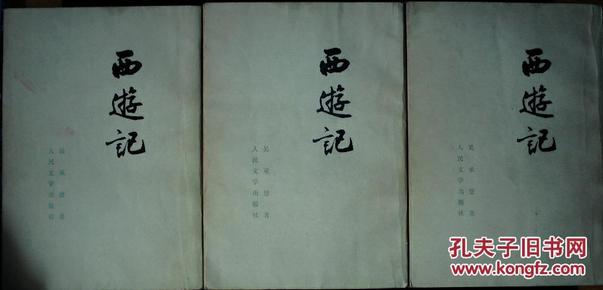 西遊記
吴承恩著
人民文学出版社
西遊記
吴承恩著
人民文学出版社
西遊記
吴承恩著
人民文学出版社
孔夫子旧书网
www.kongfz.com